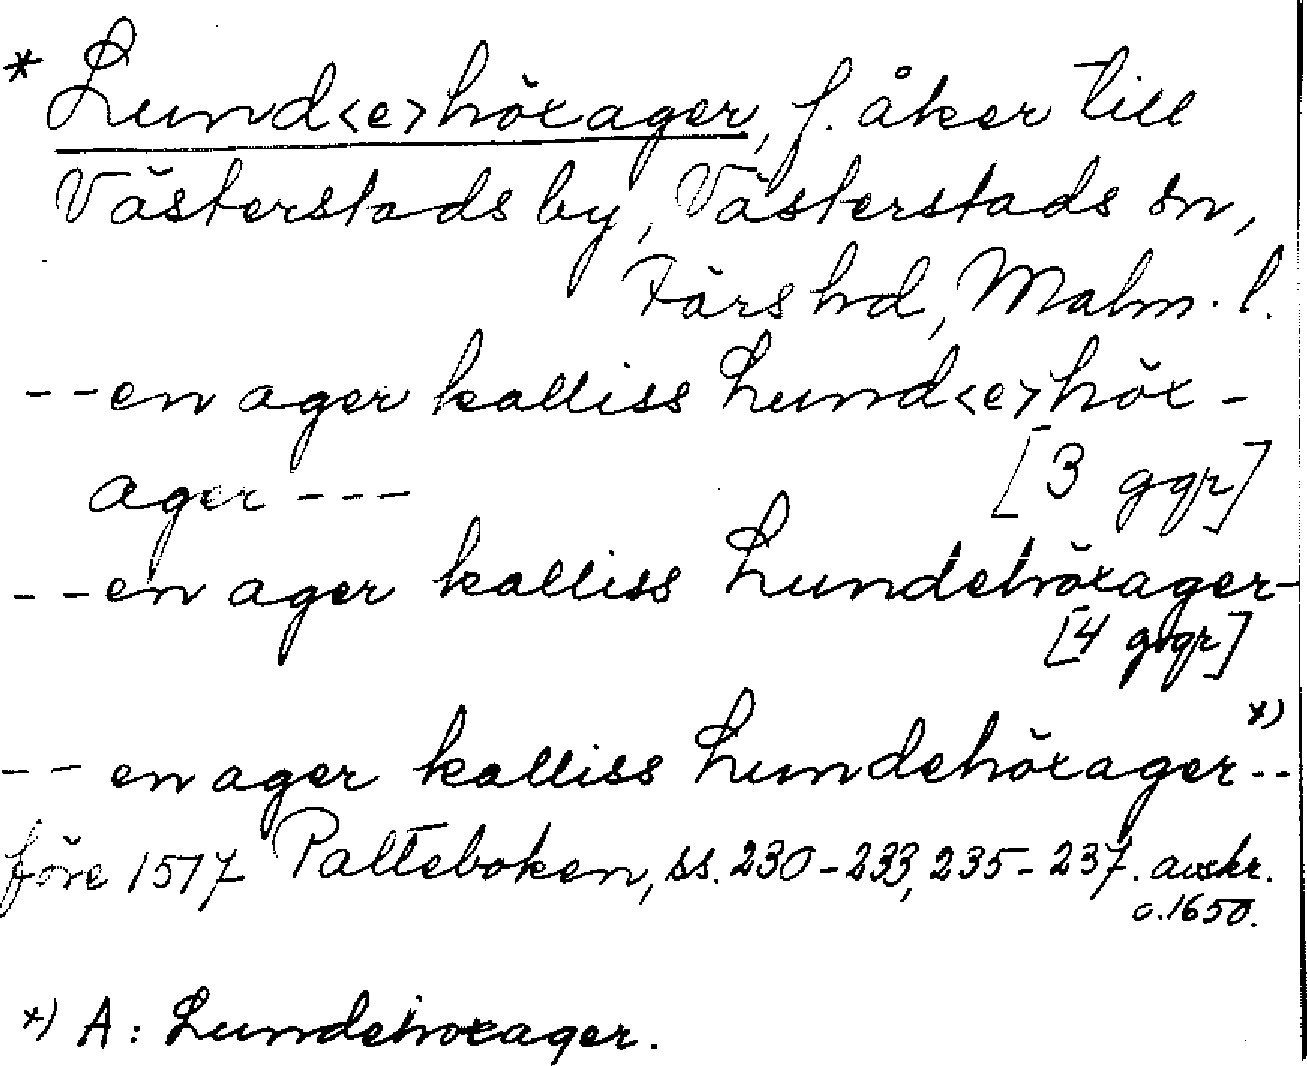 * Lund<e>höxager, f. åker till
Västerstads by, Västerstads sn,
Färs hd, Malm. l.
-- en ager kalliss Lund<e>höx-
ager --- [3 ggr]
-- en ager kalliss Lundehöxager-
[4 ggr]
-- en ager kalliss Lundehöxager *) --
före 1517 Palteboken, ss. 230-233, 235-237. avskr.
c. 1650.
*) A: Lundehoxager.